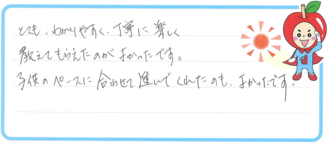 とても、わかりやすく、丁寧に楽しく
教えてもらえたのがよかったです。
子供のペースに合わせて進んでくれたのも、よかったです。